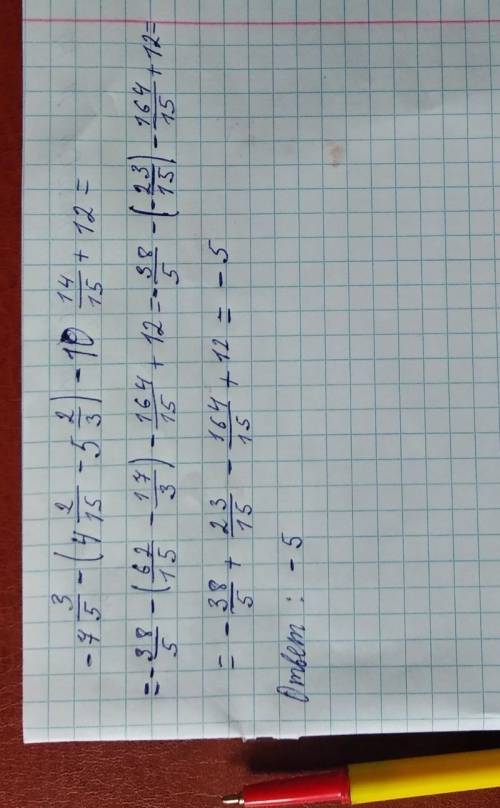 -7 3/5 - (4 2/15 - 5 2/3) - 10 14/15 + 12 =
= -38/5 - (62/15 - 17/3) - 164/15 + 12 = -38/5 - (-23/15) - 164/15 + 12 =
= -38/5 + 23/15 - 164/15 + 12 = -5
Ответ: -5